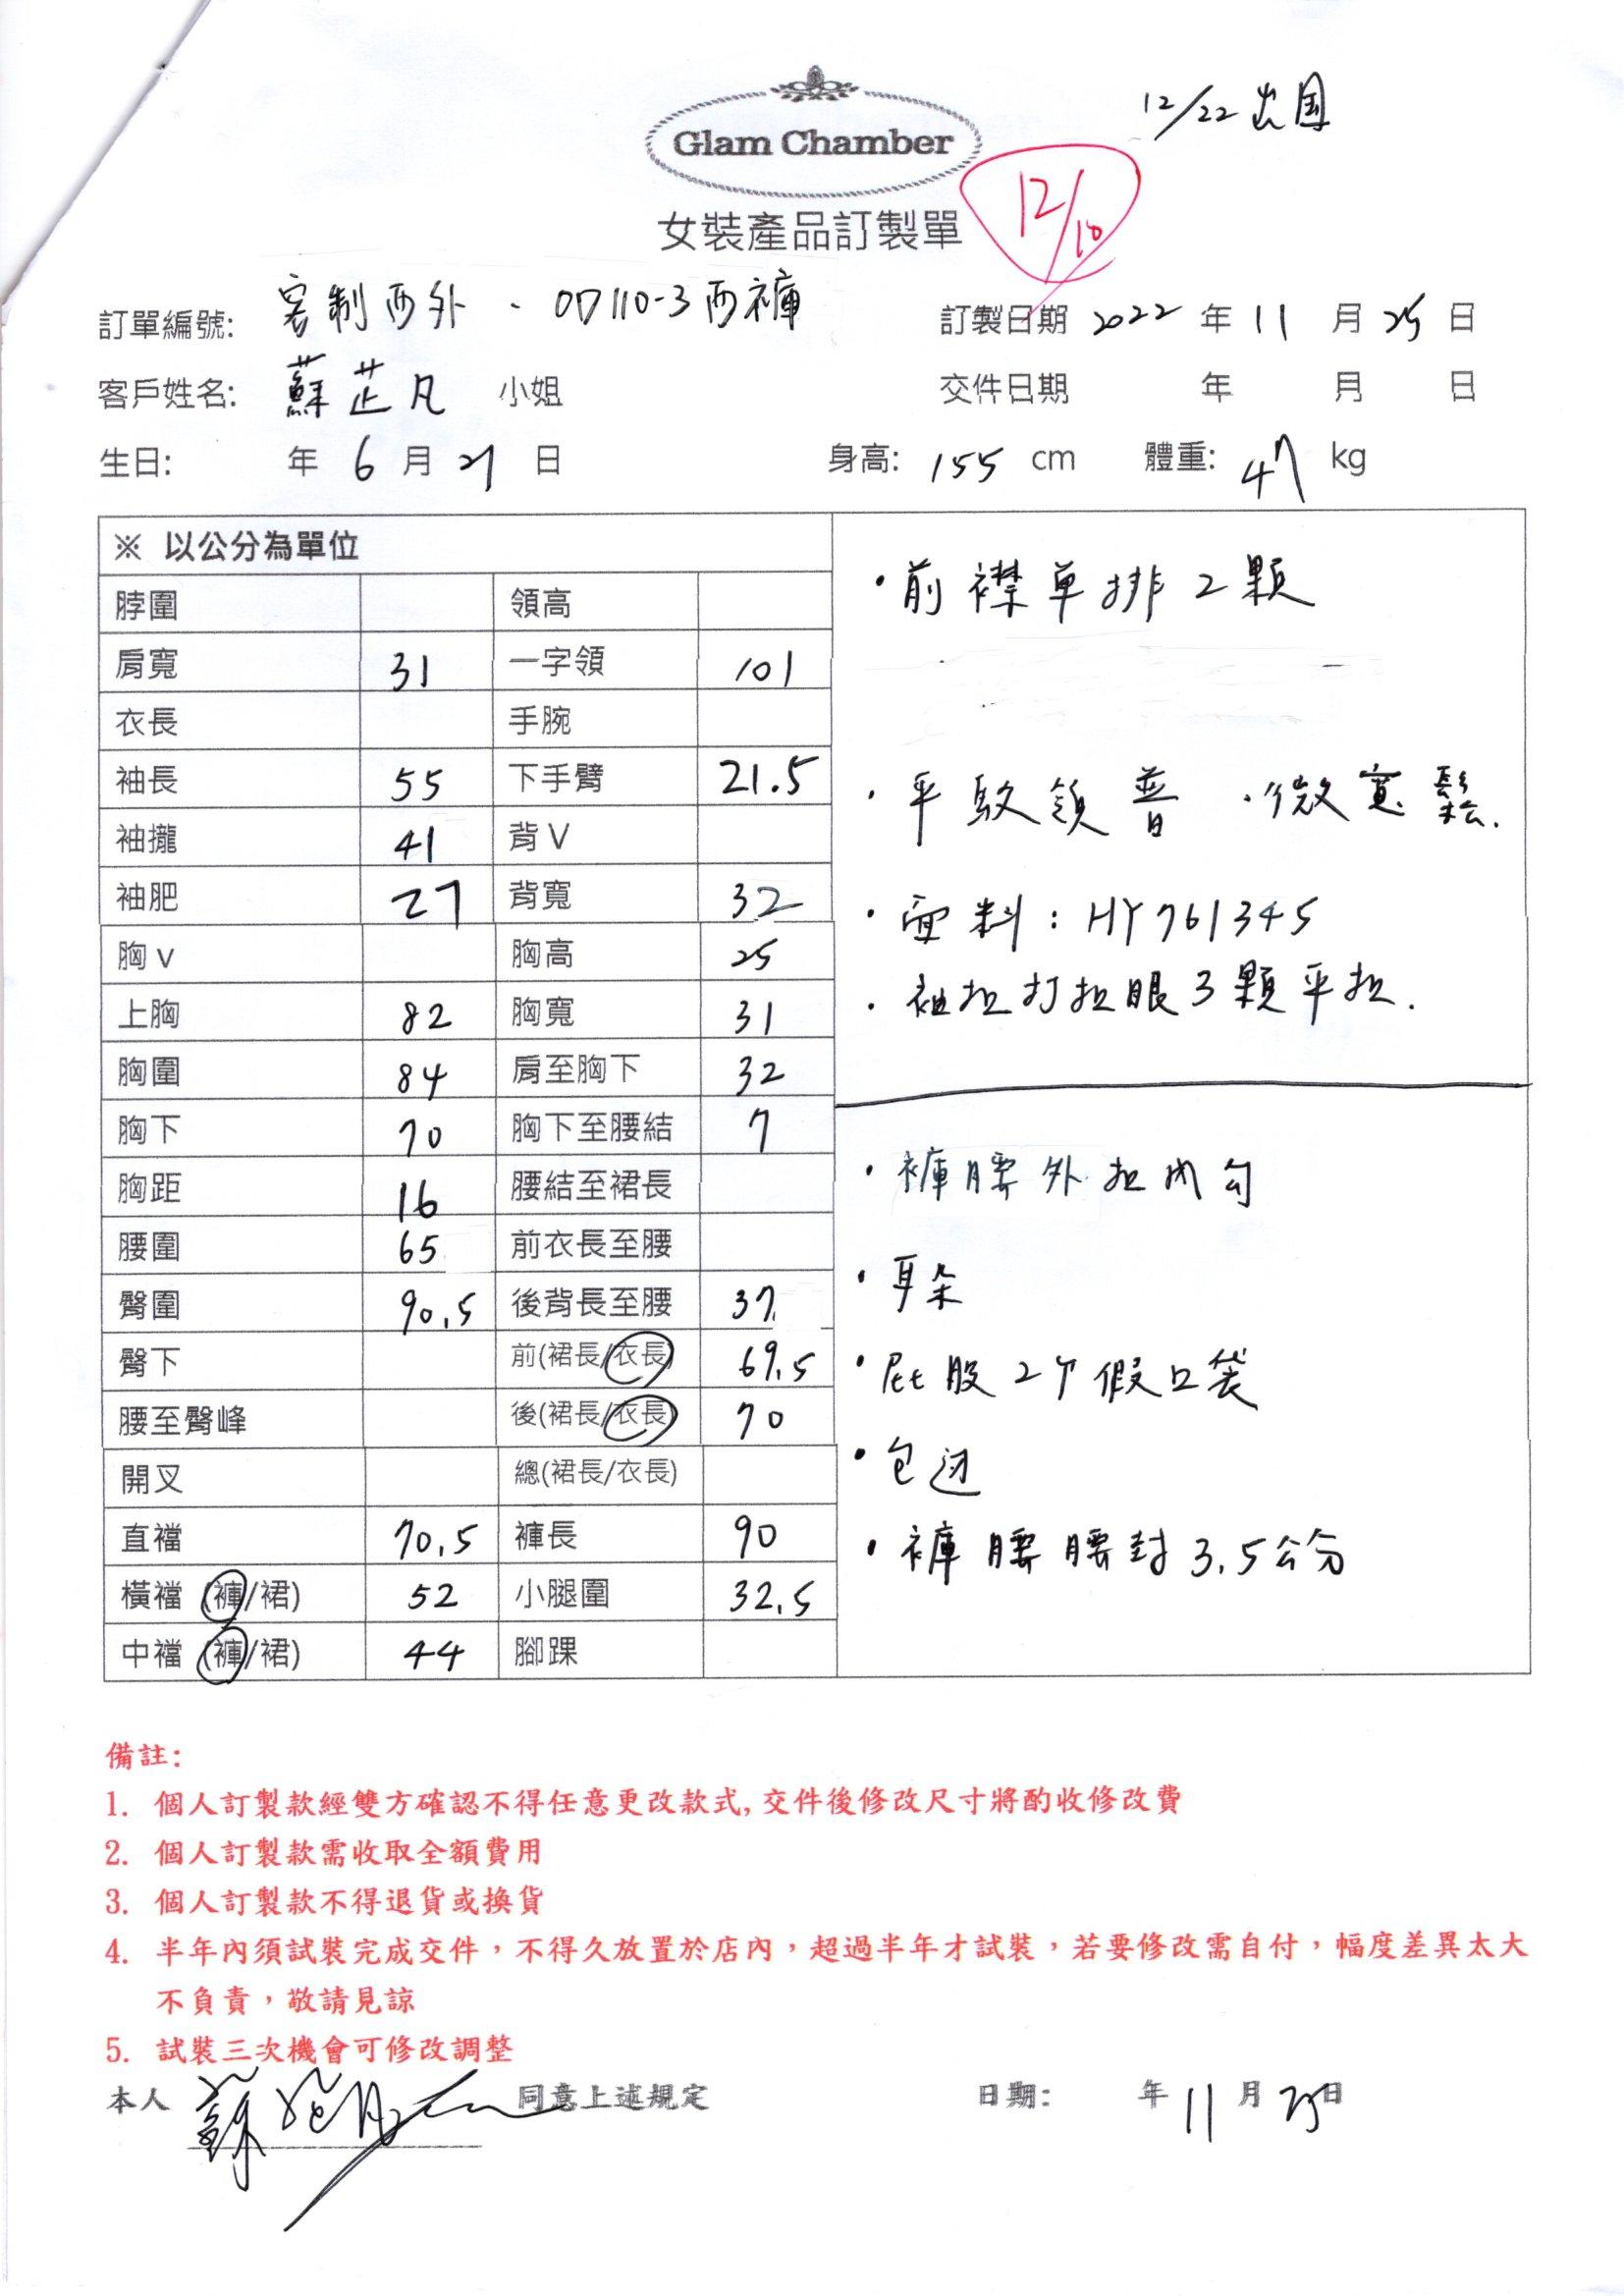 12/22出国
Glam Chamber
12/10
女裝產品訂製單
訂單編號: 客制西外、OD110-3西褲 訂製日期 2022 年 11 月 25 日
客戶姓名: 蘇芷凡 小姐 交件日期 年 月 日
生日: 年 6 月 21 日 身高: 155 cm 體重: 47 kg
※ 以公分為單位
脖圍 領高
肩寬 31 一字領 101
衣長 手腕
袖長 55 下手臂 21.5
袖攏 41 背V
袖肥 27 背寬 32
胸v 胸高 25
上胸 82 胸寬 31
胸圍 84 肩至胸下 32
胸下 70 胸下至腰結 7
胸距 16 腰結至裙長
腰圍 65 前衣長至腰
臀圍 90.5 後背長至腰 37
臀下 前(裙長/衣長) 69.5
腰至臀峰 後(裙長/衣長) 70
開叉 總(裙長/衣長)
直襠 70.5 褲長 90
橫襠 (褲/裙) 52 小腿圍 32.5
中襠 (褲/裙) 44 腳踝
·前襟單排2顆
·平駁領 普 ·微寬鬆.
·面料: HY761345
·袖扣打扣眼3顆平扣.
·褲腰外扣內勾
·耳朵
·屁股2个假口袋
·包边
·褲腰腰封3.5公分
備註:
1. 個人訂製款經雙方確認不得任意更改款式,交件後修改尺寸將酌收修改費
2. 個人訂製款需收取全額費用
3. 個人訂製款不得退貨或換貨
4. 半年內須試裝完成交件，不得久放置於店內，超過半年才試裝，若要修改需自付，幅度差異太大
不負責，敬請見諒
5. 試裝三次機會可修改調整
本人 蘇芷凡 同意上述規定 日期: 年 11 月 25 日